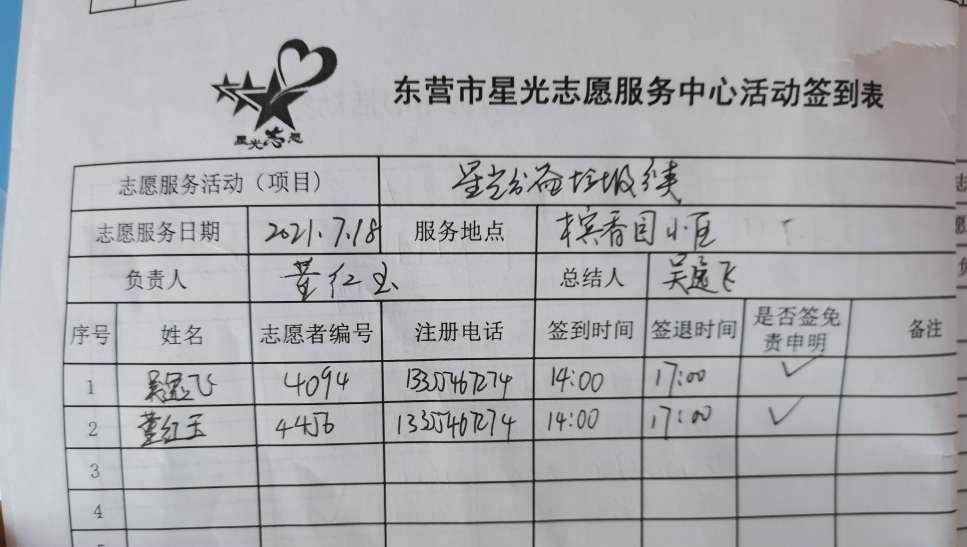 星光志愿
东营市星光志愿服务中心活动签到表
志愿服务活动（项目） 星光公益垃圾分类
志愿服务日期 2021.7.18 服务地点 槟香园小区
负责人 董红玉 总结人 吴逸飞
序号 姓名 志愿者编号 注册电话 签到时间 签退时间 是否签免责申明 备注
1 吴逸飞 4094 13355467274 14:00 17:00 ✓
2 董红玉 4456 13355467274 14:00 17:00 ✓
3
4